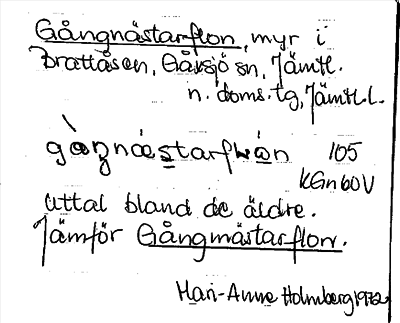 Gångnästarflon, myr i
Brattåsen, Gårsjö sn, Jämtl.
n. doms. tg, Jämtl. l.
105
KGn 60V
Uttal bland de äldre.
Jämför Gångmästarflon.
Mari-Anne Holmberg 1972